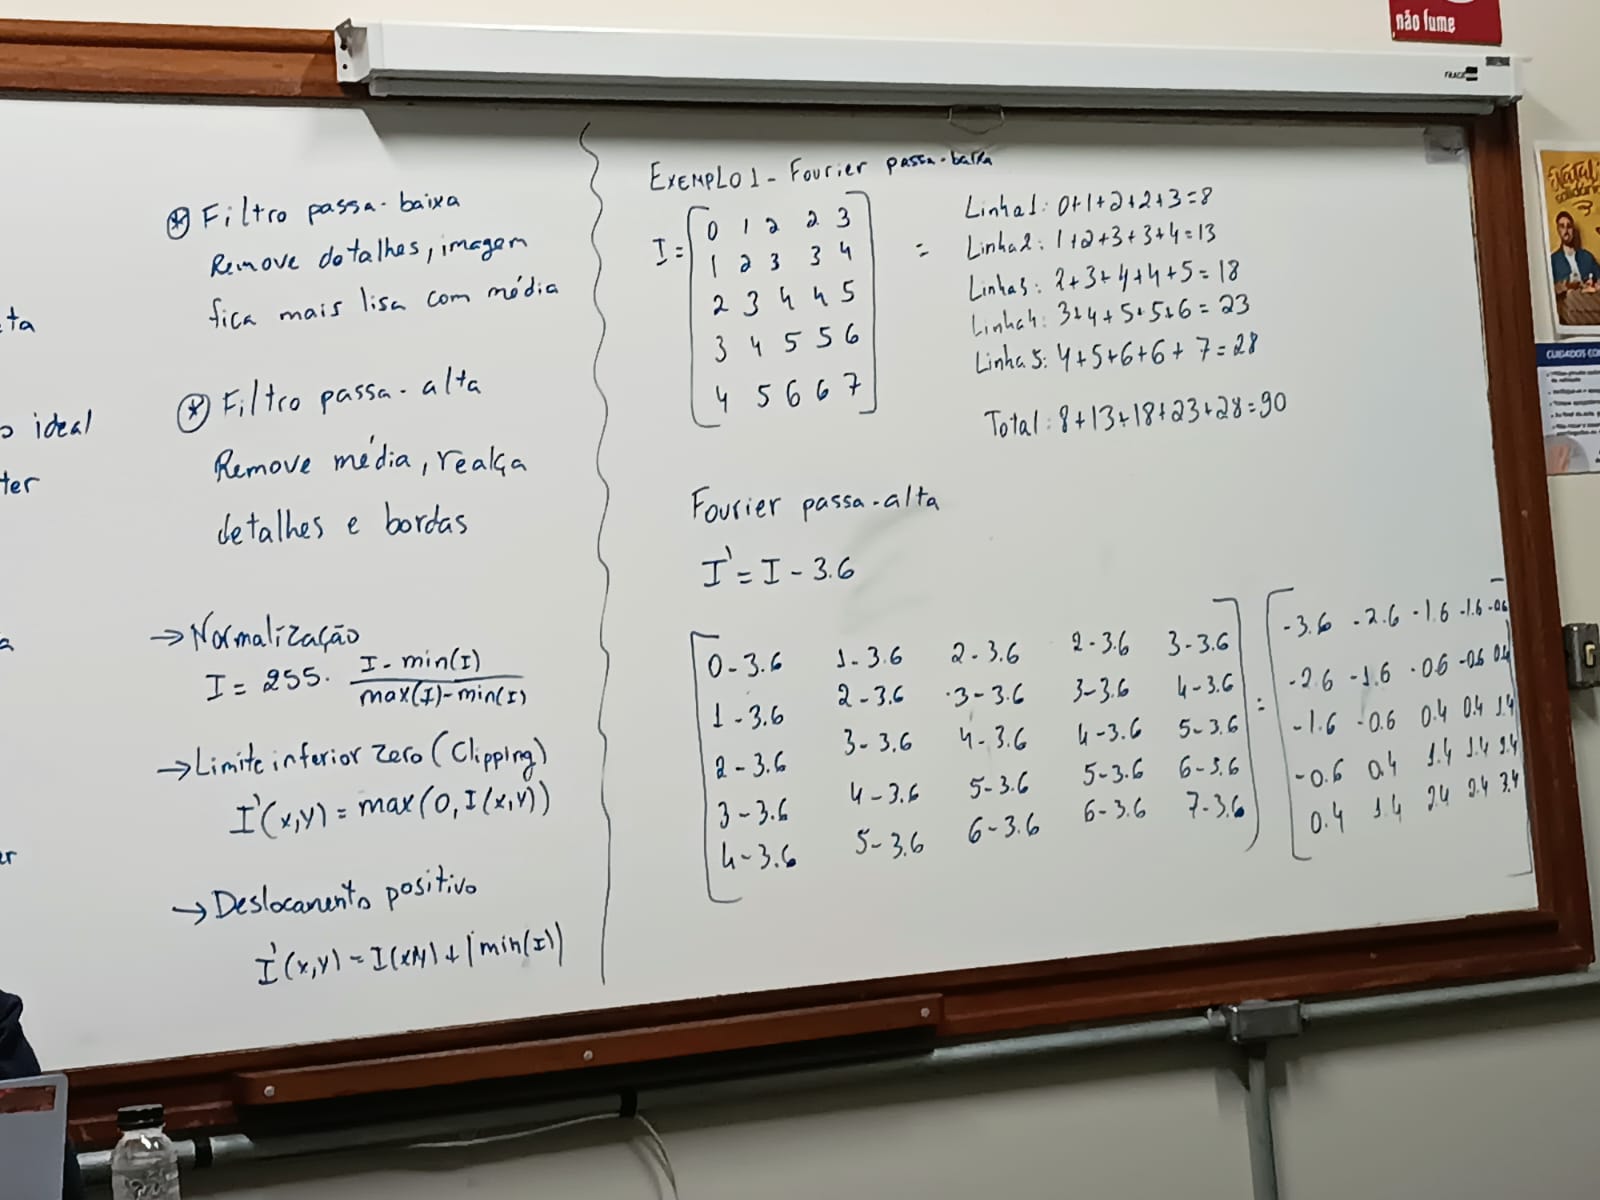 não fume
FRACE
eta
o ideal
ter
a
er
* Filtro passa-baixa
Remove detalhes, imagem
fica mais lisa com média
* Filtro passa-alta
Remove média, realça
detalhes e bordas
→ Normalização
I = 255. I - min(I)
max(I)-min(I)
→ Limite inferior zero (Clipping)
I'(x,y) = max(0, I(x,y))
→ Deslocamento positivo
I'(x,y) = I(x,y) + |min(I)|
EXEMPLO 1 - Fourier passa-baixa
I = [0 1 2 2 3
1 2 3 3 4
2 3 4 4 5
3 4 5 5 6
4 5 6 6 7] =
Linha1: 0+1+2+2+3=8
Linha2: 1+2+3+3+4=13
Linha3: 2+3+4+4+5=18
Linha4: 3+4+5+5+6=23
Linha5: 4+5+6+6+7=28
Total: 8+13+18+23+28=90
Fourier passa-alta
I' = I - 3.6
[0-3.6 1-3.6 2-3.6 2-3.6 3-3.6
1-3.6 2-3.6 3-3.6 3-3.6 4-3.6
2-3.6 3-3.6 4-3.6 4-3.6 5-3.6
3-3.6 4-3.6 5-3.6 5-3.6 6-3.6
4-3.6 5-3.6 6-3.6 6-3.6 7-3.6] =
[-3.6 -2.6 -1.6 -1.6 -0.6
-2.6 -1.6 -0.6 -0.6 0.4
-1.6 -0.6 0.4 0.4 1.4
-0.6 0.4 1.4 1.4 2.4
0.4 1.4 2.4 2.4 3.4]
Natal
CUIDADOS CO